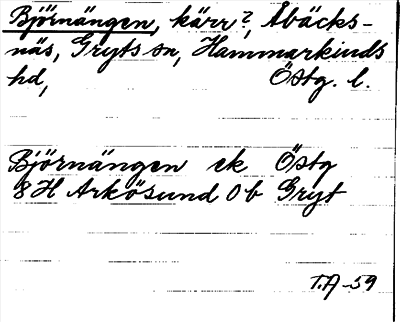 Björnängen, kärr?, Åbäcks-
näs, Gryts sn, Hammarkinds
hd, Östg. l.
Björnängen ek Östg
8H Arkösund 0b Gryt
T.A-59